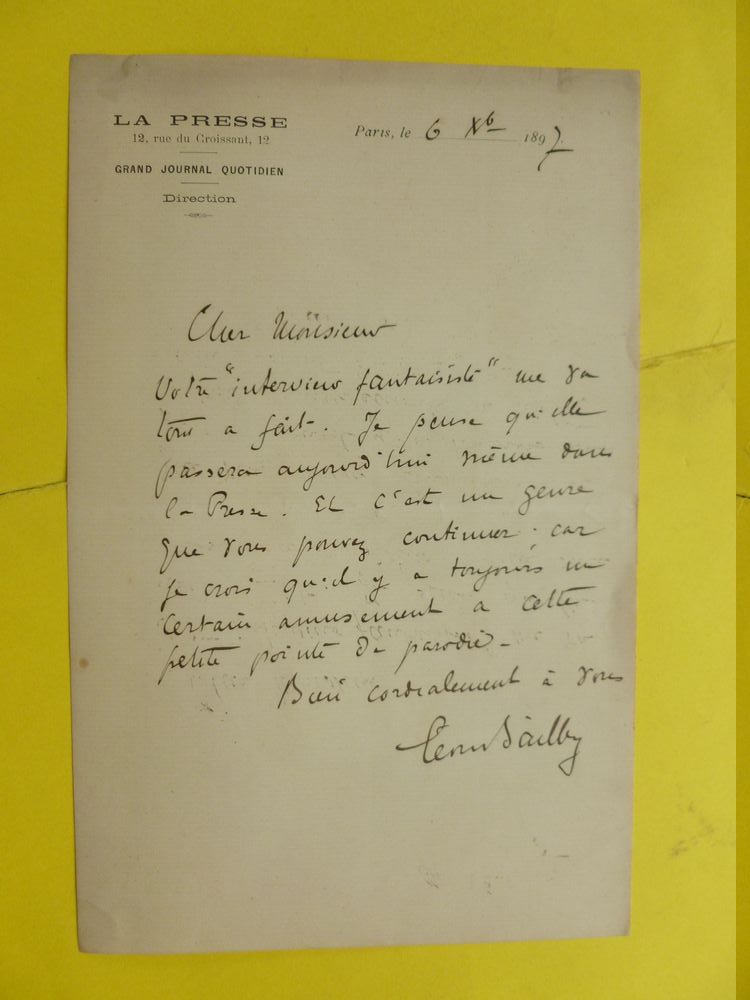 LA PRESSE
12, rue du Croissant, 12
GRAND JOURNAL QUOTIDIEN
Direction
Paris, le 6 Xb 1897
Cher Monsieur
Votre "interview fantaisiste" me va
tout a fait. Je pense qu'elle
passera aujourd'hui même dans
la Presse. Et c'est un genre
que vous pouvez continuer. car
je crois qu'il y a toujours un
certain amusement a cette
petite pointe de parodie.
Bien cordialement à vous
Leon Bailby